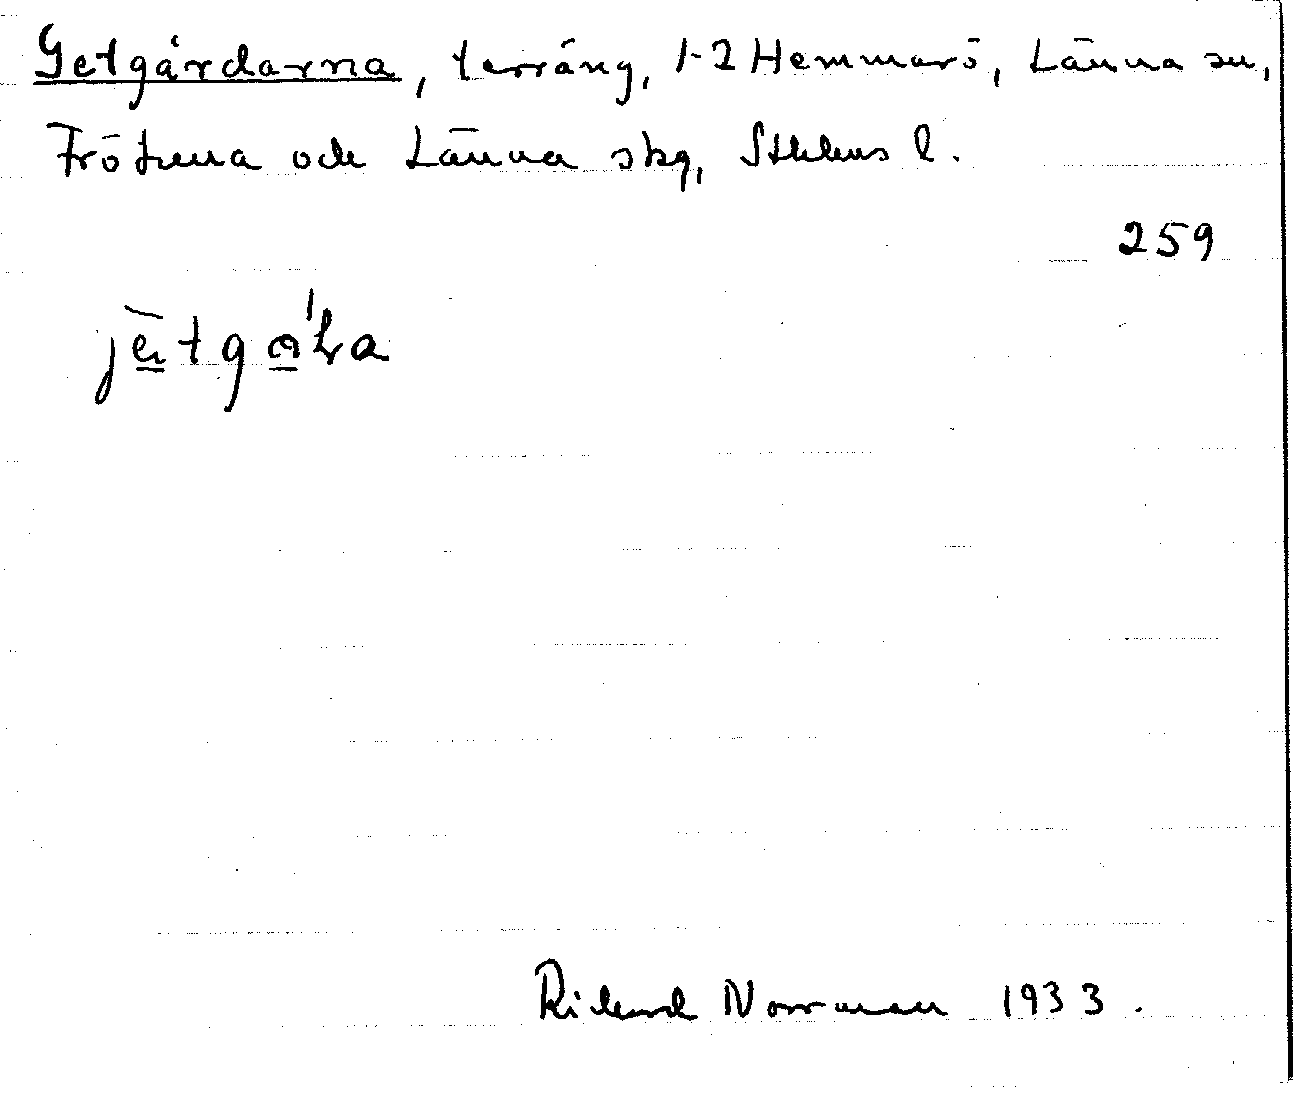 Getgårdarna, terräng, 1-2 Hemmarö, Länna sn,
Frötuna och Länna skg, Sthlms l.
259
Rickard Norrman 1933.